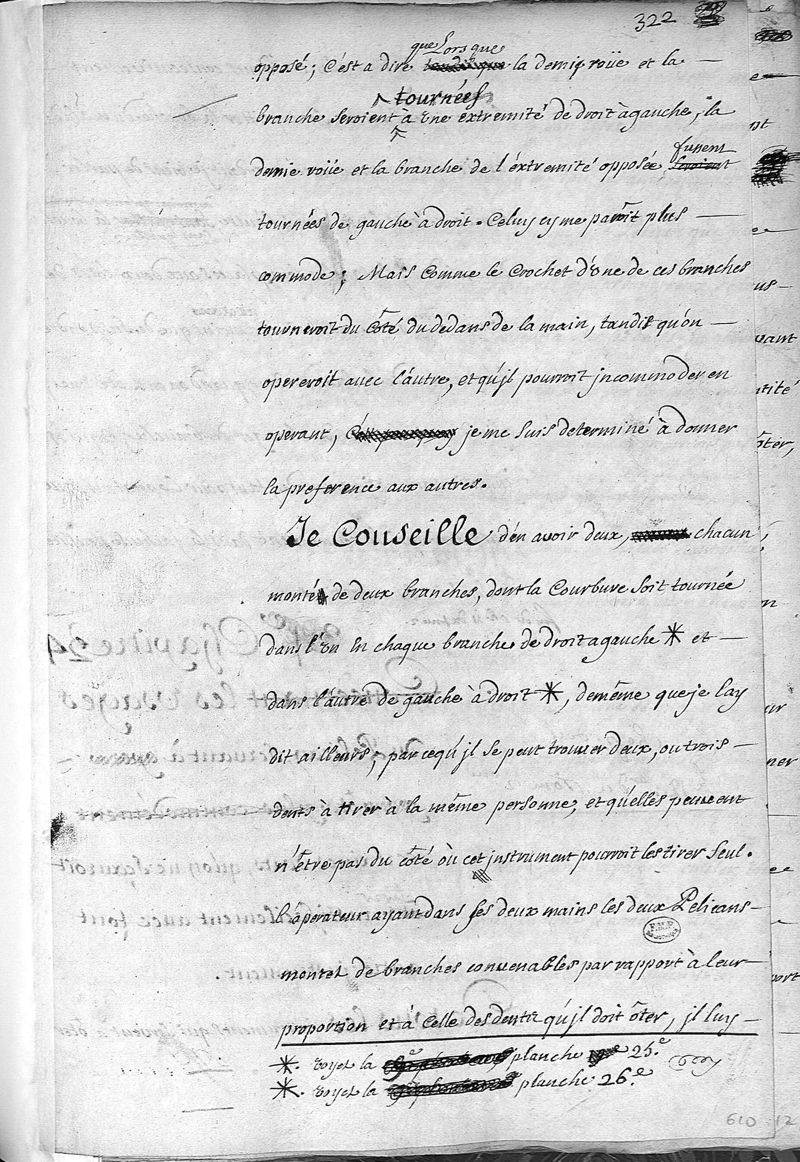 322
que Lors que
opposé; C'est a dire tandis que la demie roüe et la
tournées
branche seroient a une extremité de droit à gauche, la
fussent
demie roüe et la branche de l'éxtremité opposée, seroient
tournées de gauche à droit. Celuy cy me paroît plus
commode; Mais Comme le Crochet d'une de ces branches
tourneroit du Côté du dedans de la main, tandis qu'on
opereroit avec l'autre, et qu'jl pourroit jncommoder en
operant, je me suis determiné à donner
la preference aux autres.
Je Conseille d'en avoir deux, chacun
monté de deux branches, dont la Courbure soit tournée
dans l'un En chaque branche de droit a gauche * et
dans l'autre de gauche à droit *, de même que je l'ay
dit ailleurs, par ce qu'jl se peut trouver deux, ou trois
dents à tirer à la même personne, et qu'elles peuvent
n'être pas du côté où cet jnstrument pourroit les tirer seul.
L'operateur ayant dans ses deux mains les deux Pelicans
montez de branches convenables par rapport à leur
proportion et à Celle des dents qu'jl doit ôter, jl luy
*. voyez la planche 25.e
*. voyez la planche 26.e
610 12